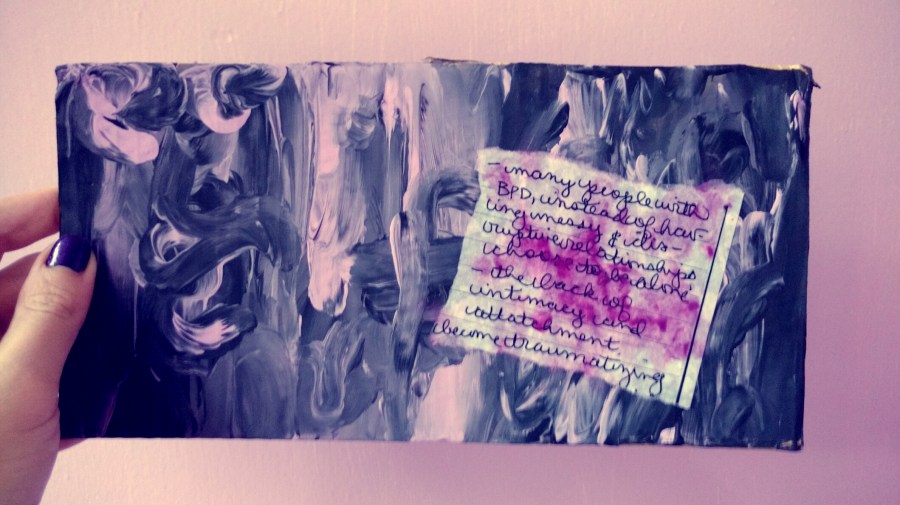 - many people with
BPD, instead of hav-
ing messy & dis-
ruptive relationships
choose to be alone.
- the lack of
intimacy and
attatchment
become traumatizing